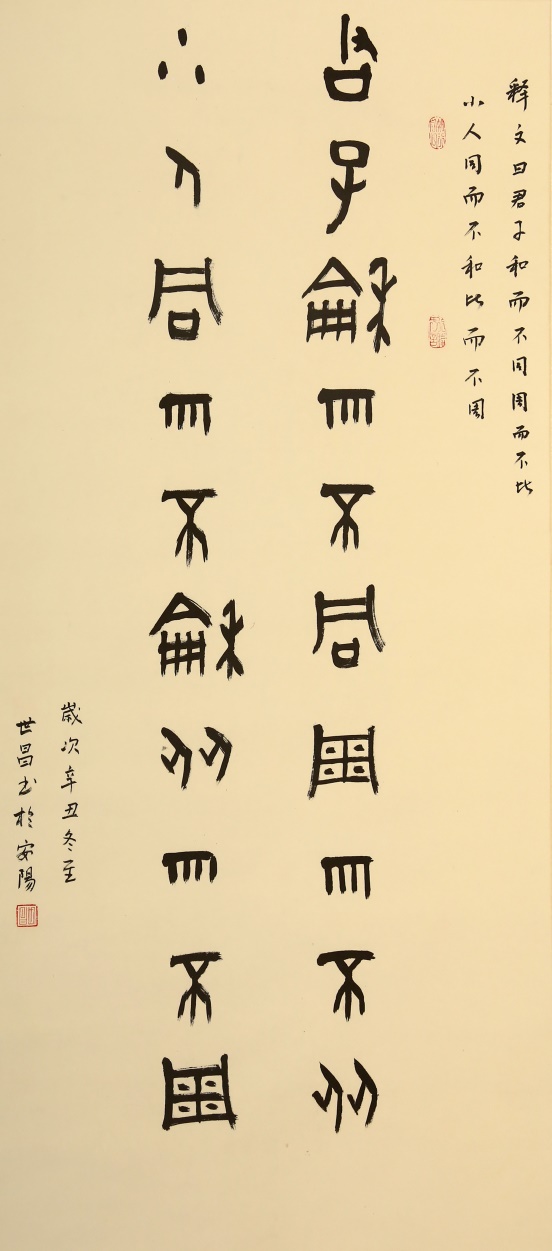 释文曰君子和而不同周而不比
小人同而不和比而不周
君子龢而不同周而不比
小人同而不龢比而不周
歲次辛丑冬至
世昌书於安陽